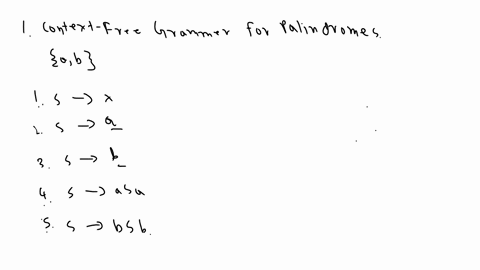 1. Context-Free Grammer for Palindromes.
{a,b}
1. S → λ
2. S → a
3. S → b
4. S → asa
5. S → bSb.